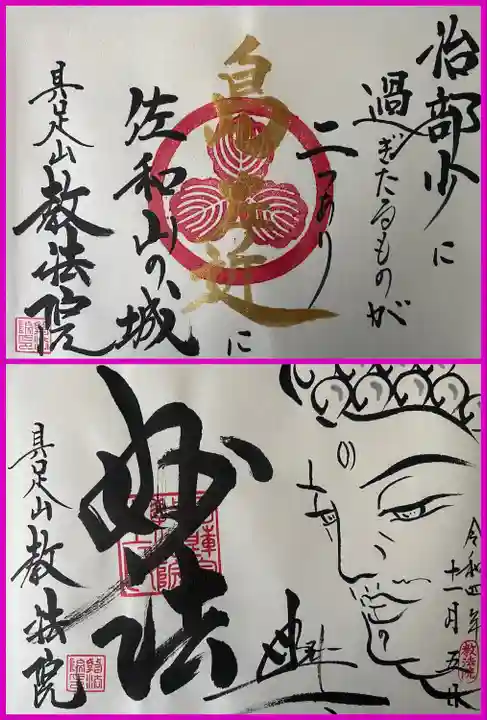 治部少に
過ぎたるものが
二つあり
島左近に
佐和山の城
具足山教法院
令和四年
十一月五日
妙法
具足山教法院
教法院